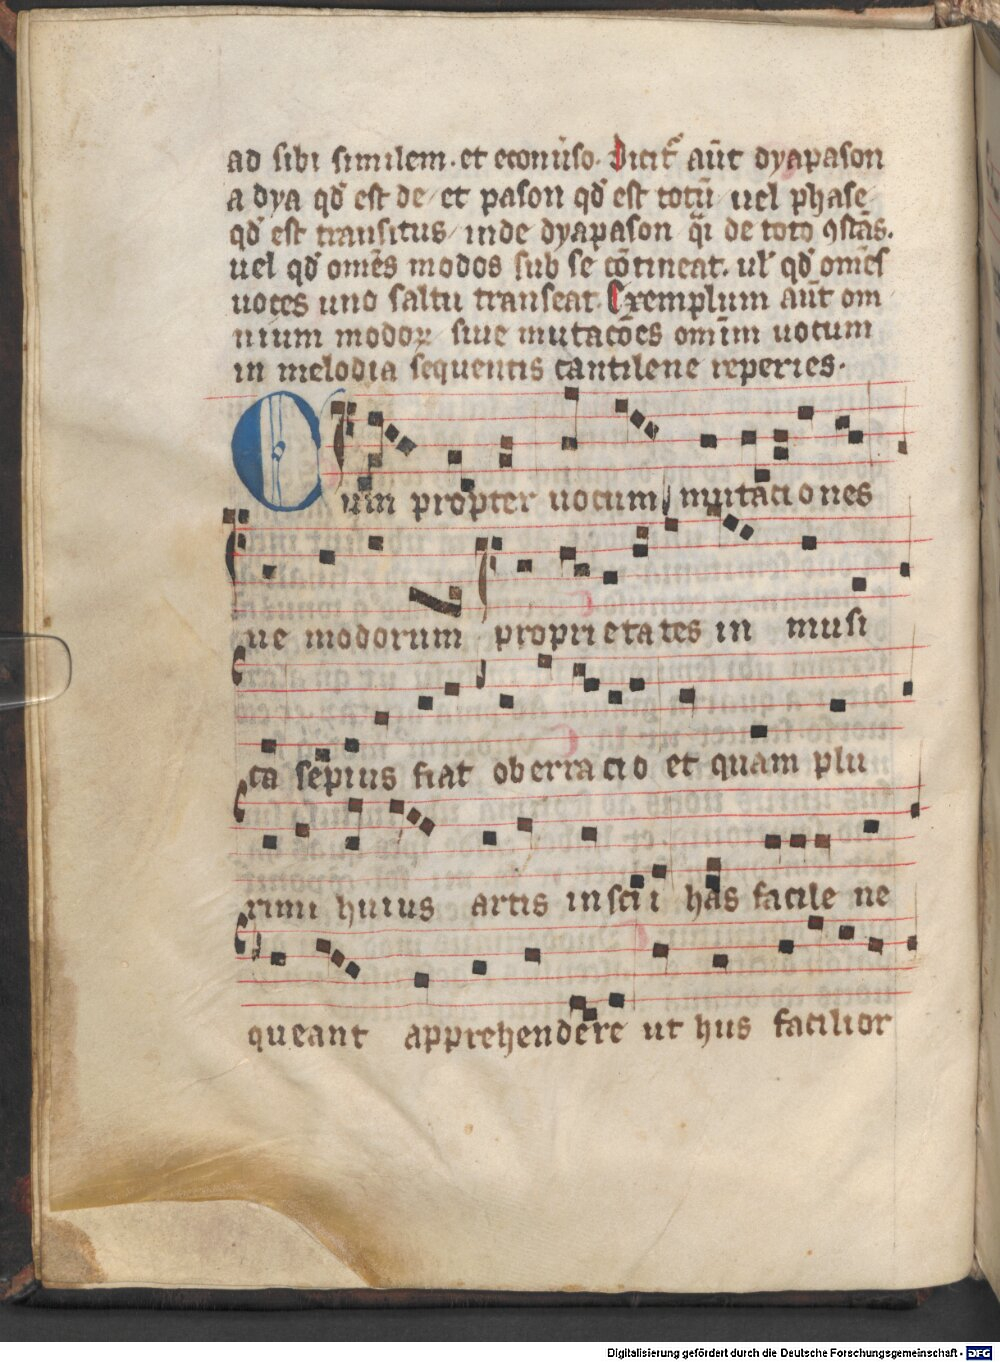 ad sibi similem. et econũso. Dicit᷑ aũt dyapason
a dya qd̕ est de / et pason qd̕ est totũ / uel phase /
qd̕ est transitus / inde dyapason q̃i de toto ꝯstãs.
uel qd̕ omẽs modos sub se cõtineat. ul̕ qd̕ omẽs
uoces uno saltu transeat. Exemplum aũt om
nium modoꝝ siue mutacões omĩm uocum
in melodia sequentis cantilene reperies.
Cum propter uocum mutaciones
ue modorum proprietates in musi
ca sepius fiat oberracio et quam plu
rimi huius artis inscii has facile ne
queant apprehendere ut hus facilior
Digitalisierung gefördert durch die Deutsche Forschungsgemeinschaft - DFG